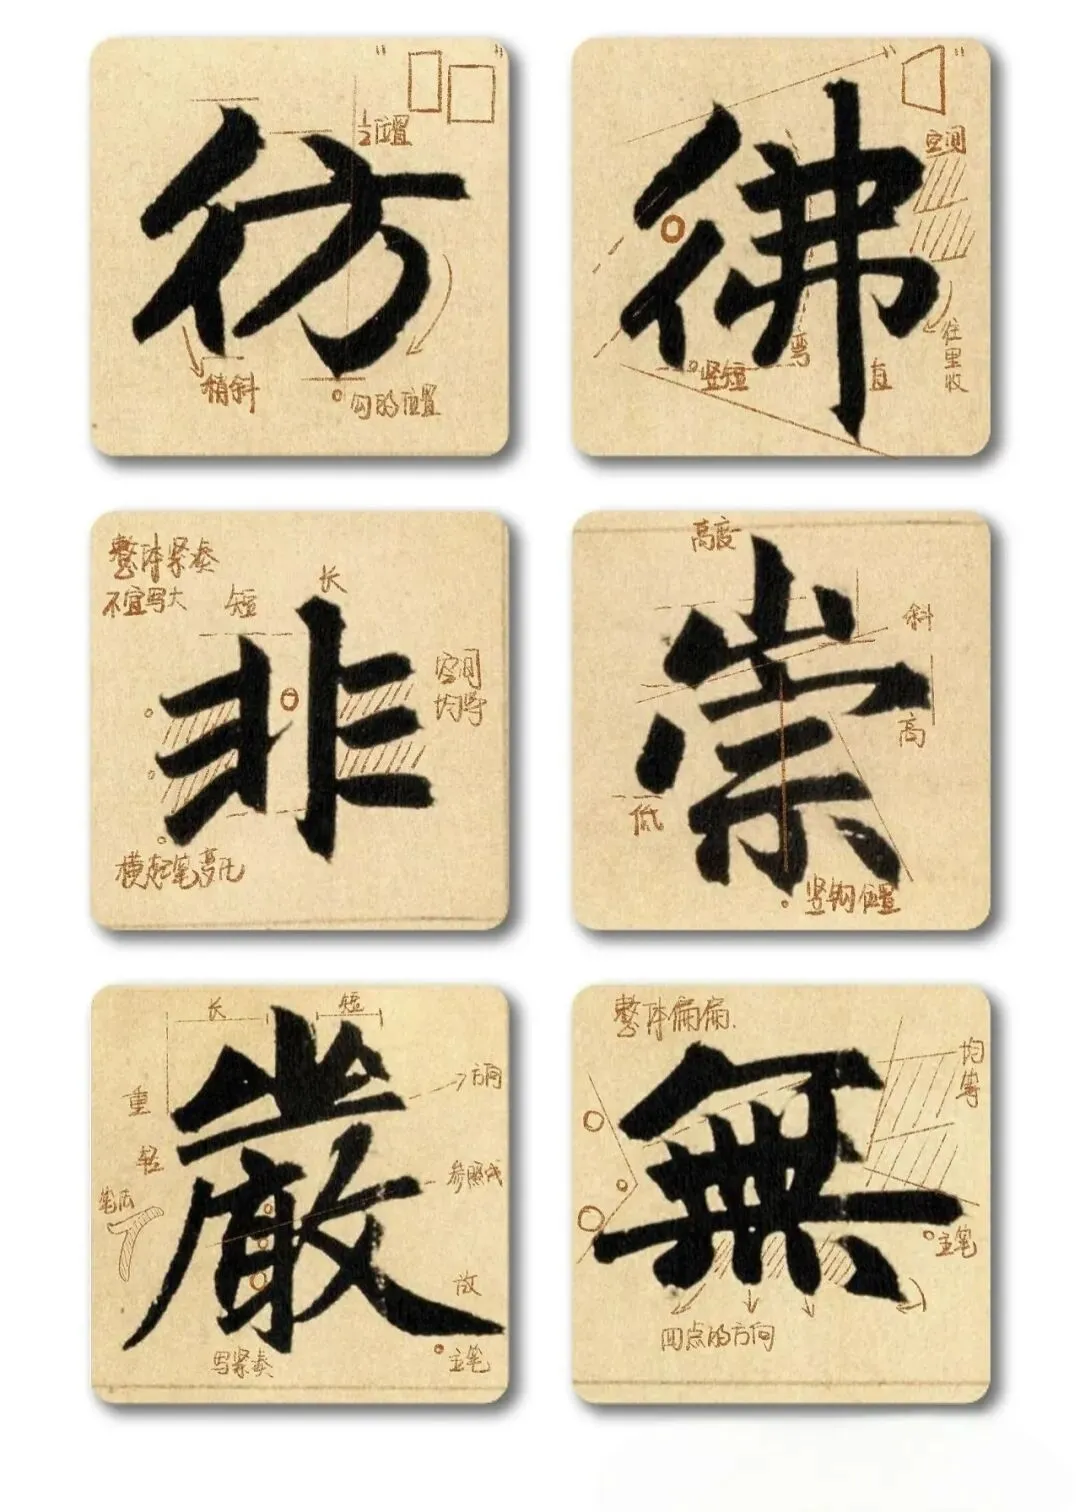 彷
½位置
稍斜
勾的位置
彿
空间
竖短
弯
直
往里收
非
整体紧凑
不宜写大
短
长
空间
均等
横起笔变化
崇
高度
斜
高
低
竖钩位置
嚴
长
短
重
轻
方向
笔法
参照线
放
写紧凑
主笔
無
整体偏扁
均等
主笔
四点的方向